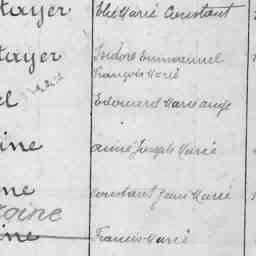 tayer Elie Marie Constant
tayer Isidore Emmanuel
François Marie
el Edouard Marie ange
ine aimé Joseph Marie
ne Constant Jean Marie
toine
ine Francis Marie